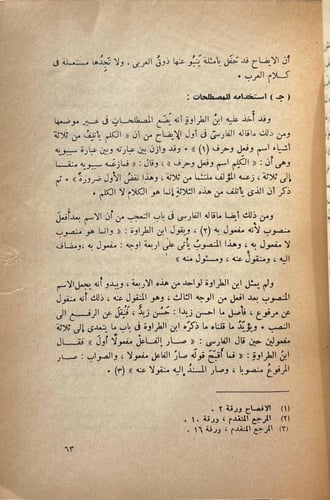 أن الايضاح قد حَفَل بأمثلة يَنْبُو عنها ذوقُ العربى ، ولا تَجِدُها مستعملة فى
كلام العرب ٠
( جـ ) استخدامه للمصطلحات :
وقد أَخَذ عليه ابنُ الطراوةِ أنه يَضَع المصطلحاتِ فى غيرِ موضعها
ومن ذلك ماقاله الفارسى فى أول الإيضاح من أن « الكلم يأتلِفُ من ثلاثة
أشياء اسم وفعل وحرف » (١) ٠ وقد وازن بين عبارته وبين عبارة سيبويه
وهى أن : « الكَلِم اسم وفعل وحرف » ، وقال : « فما زعمه سيبويه منقسما
إلى ثلاثة ، زَعَمه المؤلف ملتئما من ثلاثة ، وهذا نقضُ الأول ضرورةً » ٠ ثم
ذكر أن الذى يأتلف من هذه الثلاثةِ إنما هو الكلام لا الكلم ٠
ومن ذلك أيضا ماقاله الفارسى فى باب التعجب من أن الاسم بعد أفعل
منصوب لأنه مفعول به (٢) ، ويقول ابن الطراوة : « وانما هو منصوب
لا مفعول به ، وهذا المنصوبُ يأتى على أربعة اوجه : مفعول به ، ومضاف
اليه ، ومنقول عنه ، ومسئول منه »
ولم يمثل ابن الطراوة لواحد من هذه الاربعة ، ويبدو أنه يجعل الاسم
المنصوب بعد افعل من الوجه الثالث ، وهو المنقول عنه ، ذلك أنه منقول
عن مرفوع ، فأصل ما احسن زيدا : حَسُن زيدٌ ، فَنُقِلَ عن الرفع الى
النصب ٠ ويؤيّدُ ما قلناه ما ذكره ابن الطراوة فى باب ما يتعدى إلى ثلاثة
مفعولين حين قال الفارسى : « صار الفاعلُ مفعولًا أولَ » فقال
ابنُ الطراوةِ : « فما أَقبحَ قولَه صارُ الفاعل مفعولا ، والصواب : صار
المرفوعُ منصوبا ، وصار المسندُ إليه منقولا عنه » (٣) ٠
(١) الافصاح ورقة ٢ ٠
(٢) المرجع المتقدم ، ورقة ١٠ ٠
(٣) المرجع المتقدم ، ورقة ١٦ ٠
٦٣